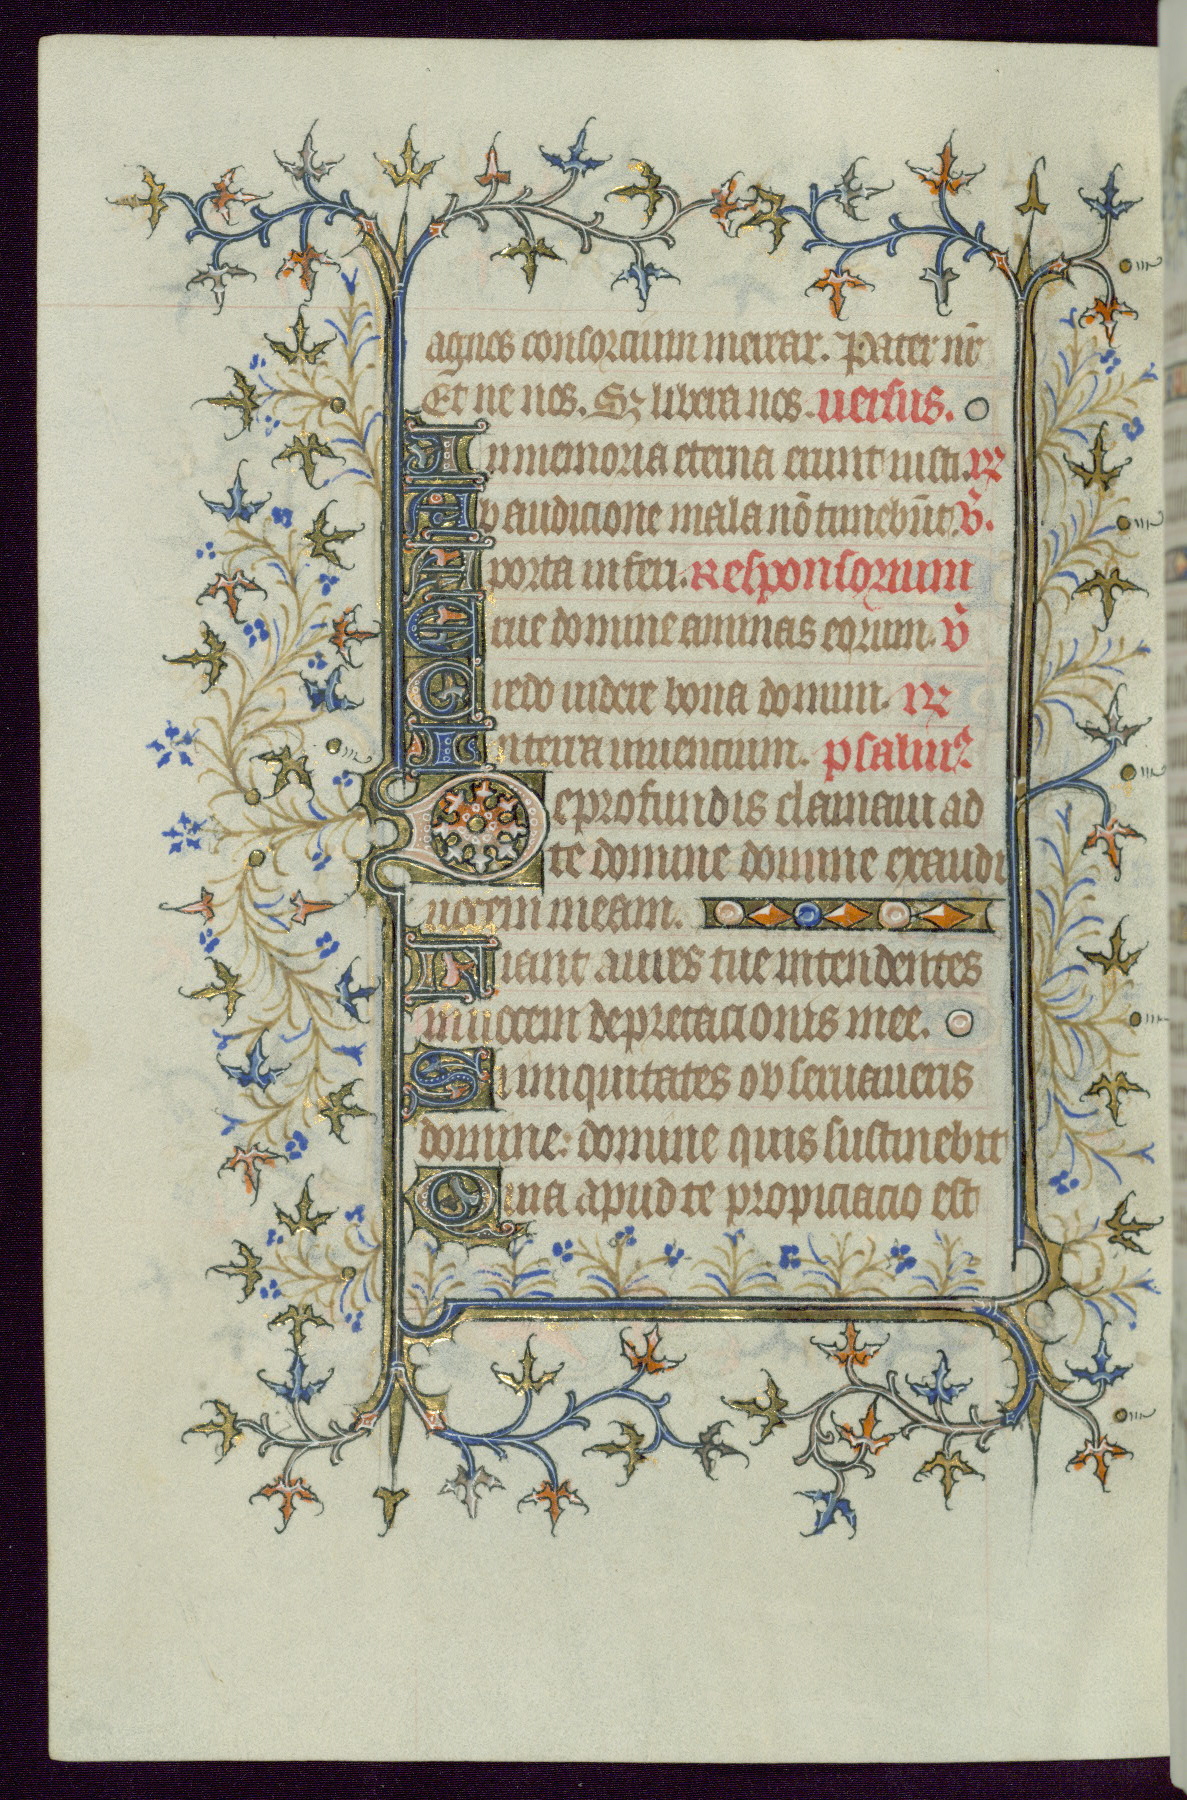 agnes consorcium merear. Pater nr̄
Et ne nos. Sꝫ libera nos. uersus.
In memoria eterna erunt iusti. ꝶ
Ab audicione mala nō timebūt. v̄.
A porta inferi. Responsorium
Erue domine animas eorum. v̄
Credo uidere bona domini. ꝶ
In terra uiuencium. psalmꝰ
De profundis clamaui ad
te domine domine exaudi
uocem meam.
Fiant aures tue intendentes
in uocem deprecacionis mee.
Si iniquitates obseruaueris
domine: domine quis sustinebit
Quia apud te propiciacio est